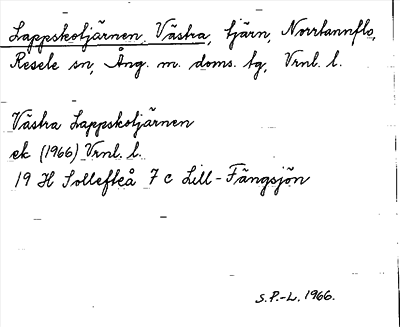 Lappskotjärnen, Västra, tjärn, Norrtannflo,
Resele sn, Ång. m. doms. tg, Vrnl. l.
Västra Lappskotjärnen
ek (1966) Vrnl. l.
19 H Sollefteå 7 c Lill-Fängsjön
S.P.-L. 1966.